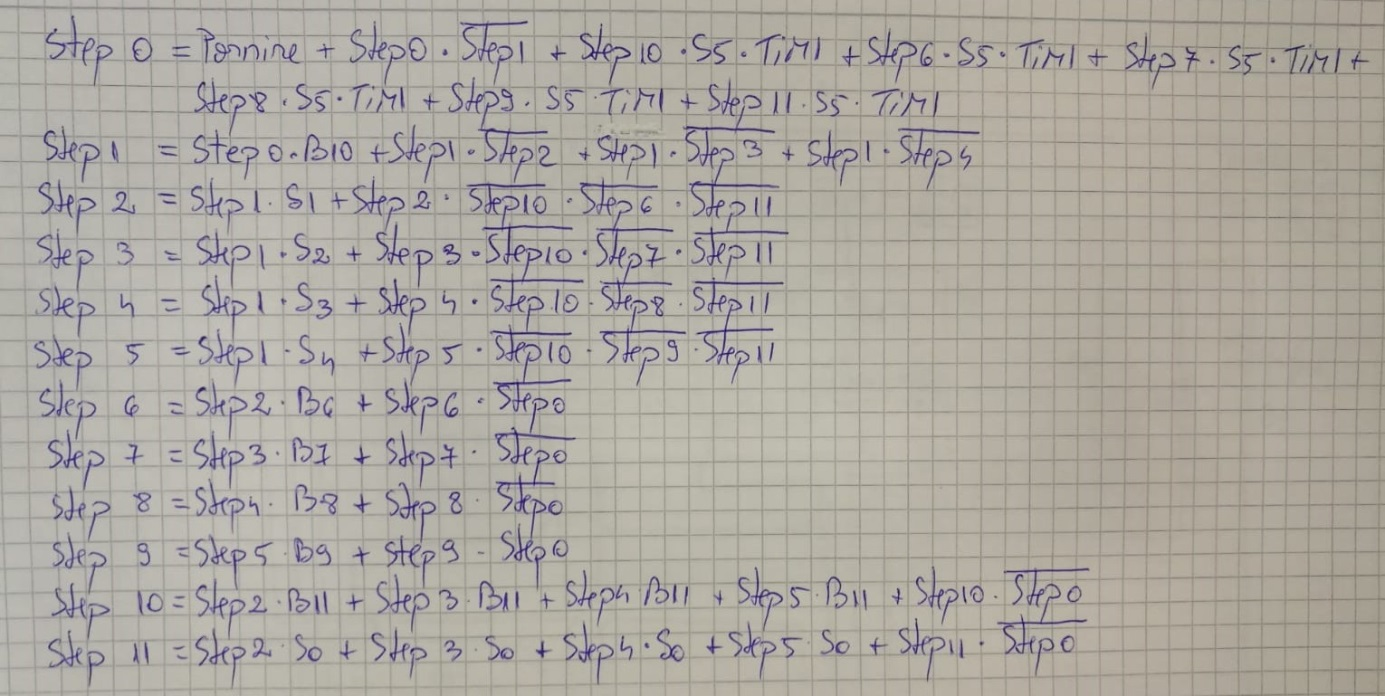 Step 0 = Pornire + Step0 · S̅t̅e̅p̅1̅ + Step10 · S5 · TiM1 + Step6 · S5 · TiM1 + Step7 · S5 · TiM1 +
Step8 · S5 · TiM1 + Step9 · S5 · TiM1 + Step11 · S5 · TiM1
Step1 = Step0 · B10 + Step1 · S̅t̅e̅p̅2̅ + Step1 · S̅t̅e̅p̅3̅ + Step1 · S̅t̅e̅p̅4̅
Step 2 = Step1 · S1 + Step2 · S̅t̅e̅p̅1̅0̅ · S̅t̅e̅p̅6̅ · S̅t̅e̅p̅1̅1̅
Step 3 = Step1 · S2 + Step3 · S̅t̅e̅p̅1̅0̅ · S̅t̅e̅p̅7̅ · S̅t̅e̅p̅1̅1̅
Step 4 = Step1 · S3 + Step4 · S̅t̅e̅p̅1̅0̅ · S̅t̅e̅p̅8̅ · S̅t̅e̅p̅1̅1̅
Step 5 = Step1 · S4 + Step5 · S̅t̅e̅p̅1̅0̅ · S̅t̅e̅p̅9̅ · S̅t̅e̅p̅1̅1̅
Step 6 = Step2 · B6 + Step6 · S̅t̅e̅p̅0̅
Step 7 = Step3 · B7 + Step7 · S̅t̅e̅p̅0̅
Step 8 = Step4 · B8 + Step8 · S̅t̅e̅p̅0̅
Step 9 = Step5 · B9 + Step9 · Step0
Step 10 = Step2 · B11 + Step3 · B11 + Step4 · B11 + Step5 · B11 + Step10 · S̅t̅e̅p̅0̅
Step 11 = Step2 · S0 + Step3 · S0 + Step4 · S0 + Step5 · S0 + Step11 · S̅t̅e̅p̅0̅